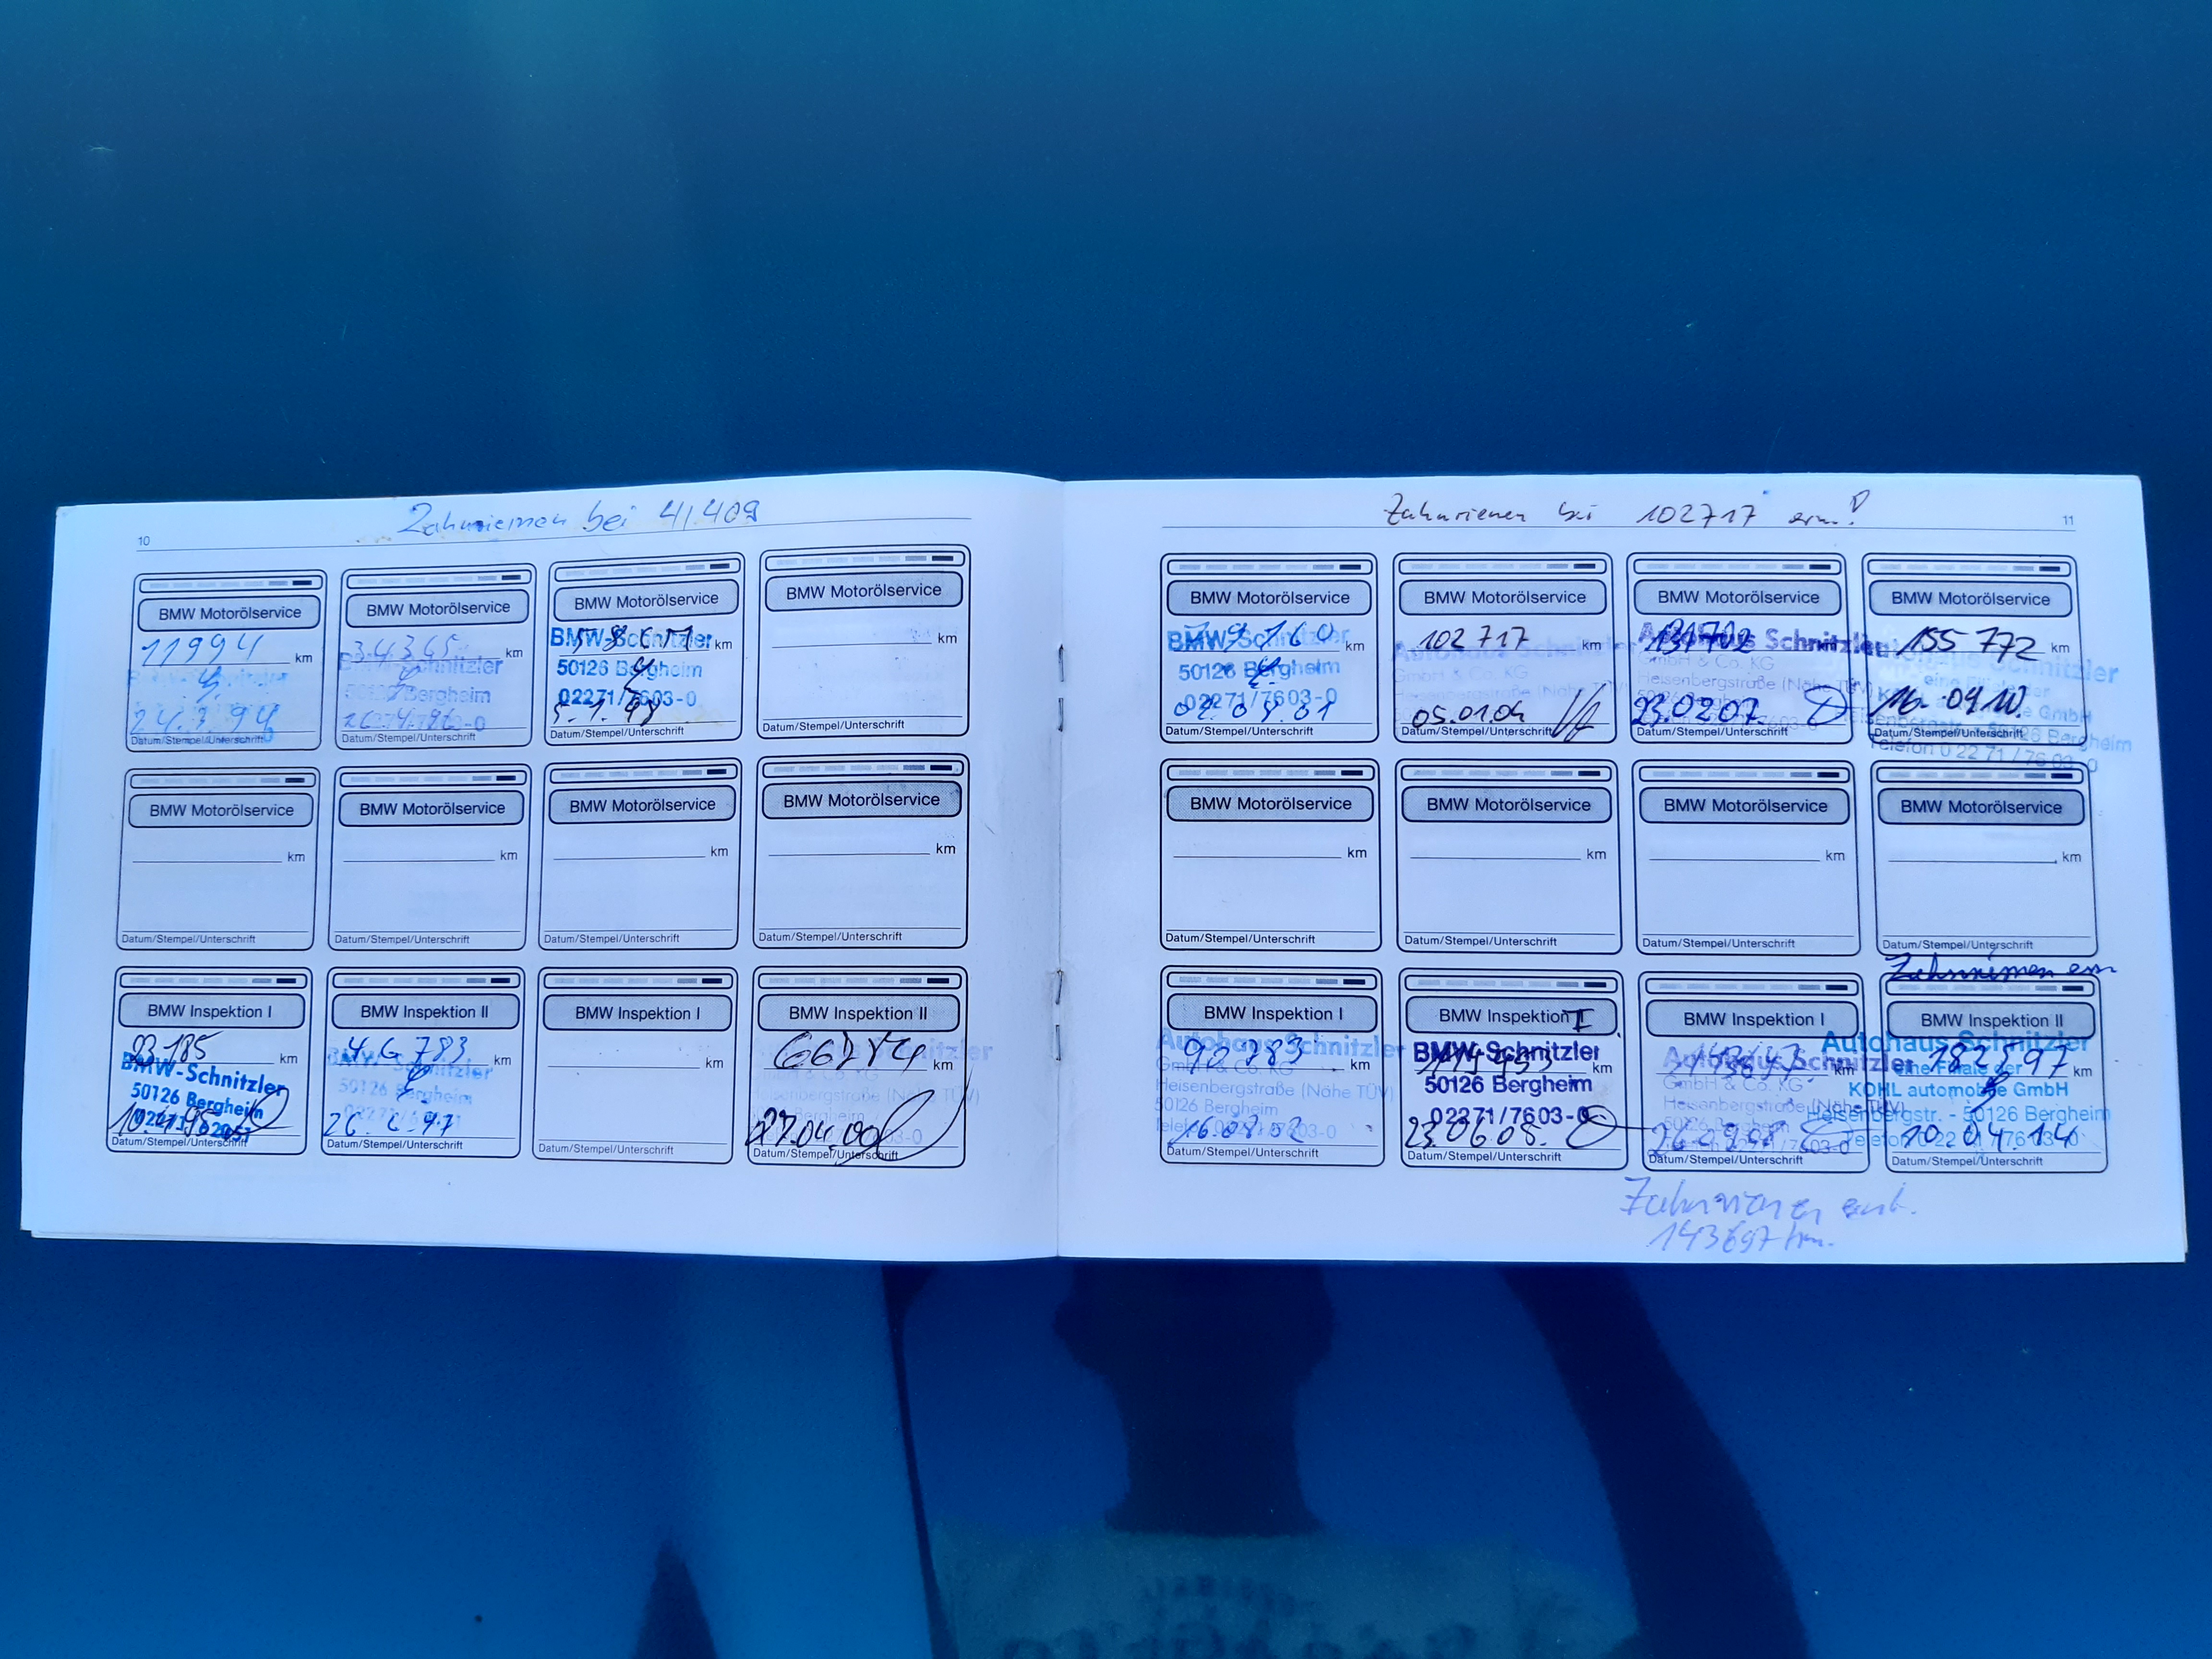 Zahnriemen bei 41.409
10
BMW Motorölservice
11994 km
24.3.94
Datum/Stempel/Unterschrift
BMW Motorölservice
34.365 km
BMW-Schnitzler
50126 Bergheim
Datum/Stempel/Unterschrift
BMW Motorölservice
km
BMW-Schnitzler
50126 Bergheim
02271/7603-0
5.1.98
Datum/Stempel/Unterschrift
BMW Motorölservice
km
Datum/Stempel/Unterschrift
BMW Motorölservice
km
Datum/Stempel/Unterschrift
BMW Motorölservice
km
Datum/Stempel/Unterschrift
BMW Motorölservice
km
Datum/Stempel/Unterschrift
BMW Motorölservice
km
Datum/Stempel/Unterschrift
BMW Inspektion I
23185 km
BMW-Schnitzler
50126 Bergheim
Datum/Stempel/Unterschrift
BMW Inspektion II
46783 km
BMW-Schnitzler
50126 Bergheim
Datum/Stempel/Unterschrift
BMW Inspektion I
km
Datum/Stempel/Unterschrift
BMW Inspektion II
km
27.04.00
Datum/Stempel/Unterschrift
Zahnriemen bei 102717 ern.!
11
BMW Motorölservice
km
BMW-Schnitzler
50126 Bergheim
02271/7603-0
Datum/Stempel/Unterschrift
BMW Motorölservice
102717 km
Autohaus Schnitzler
GmbH & Co. KG
Heisenbergstraße (Nähe TÜV)
05.01.04
Datum/Stempel/Unterschrift
BMW Motorölservice
Autohaus Schnitzler
GmbH & Co. KG
Heisenbergstraße (Nähe TÜV)
23.02.07
Datum/Stempel/Unterschrift
BMW Motorölservice
155 772 km
eine Filiale der
16.04.10.
50126 Bergheim
Datum/Stempel/Unterschrift
Telefon 0 22 71 / 76 03 - 0
BMW Motorölservice
km
Datum/Stempel/Unterschrift
BMW Motorölservice
km
Datum/Stempel/Unterschrift
BMW Motorölservice
km
Datum/Stempel/Unterschrift
BMW Motorölservice
km
Datum/Stempel/Unterschrift
Zahnriemen ern
BMW Inspektion I
90283 km
Autohaus Schnitzler
GmbH & Co. KG
Heisenbergstraße (Nähe TÜV)
50126 Bergheim
16.08.02
Datum/Stempel/Unterschrift
BMW Inspektion I
km
BMW-Schnitzler
50126 Bergheim
02271/7603-0
23.06.05.
Datum/Stempel/Unterschrift
BMW Inspektion I
km
Autohaus Schnitzler
GmbH & Co. KG
Heisenbergstraße (Nähe TÜV)
50126 Bergheim
Datum/Stempel/Unterschrift
BMW Inspektion II
182597 km
Autohaus Schnitzler
eine Filiale der
KOHL automobile GmbH
Heisenbergstr. - 50126 Bergheim
10.04.14
Datum/Stempel/Unterschrift
Zahnriemen
143697 km.